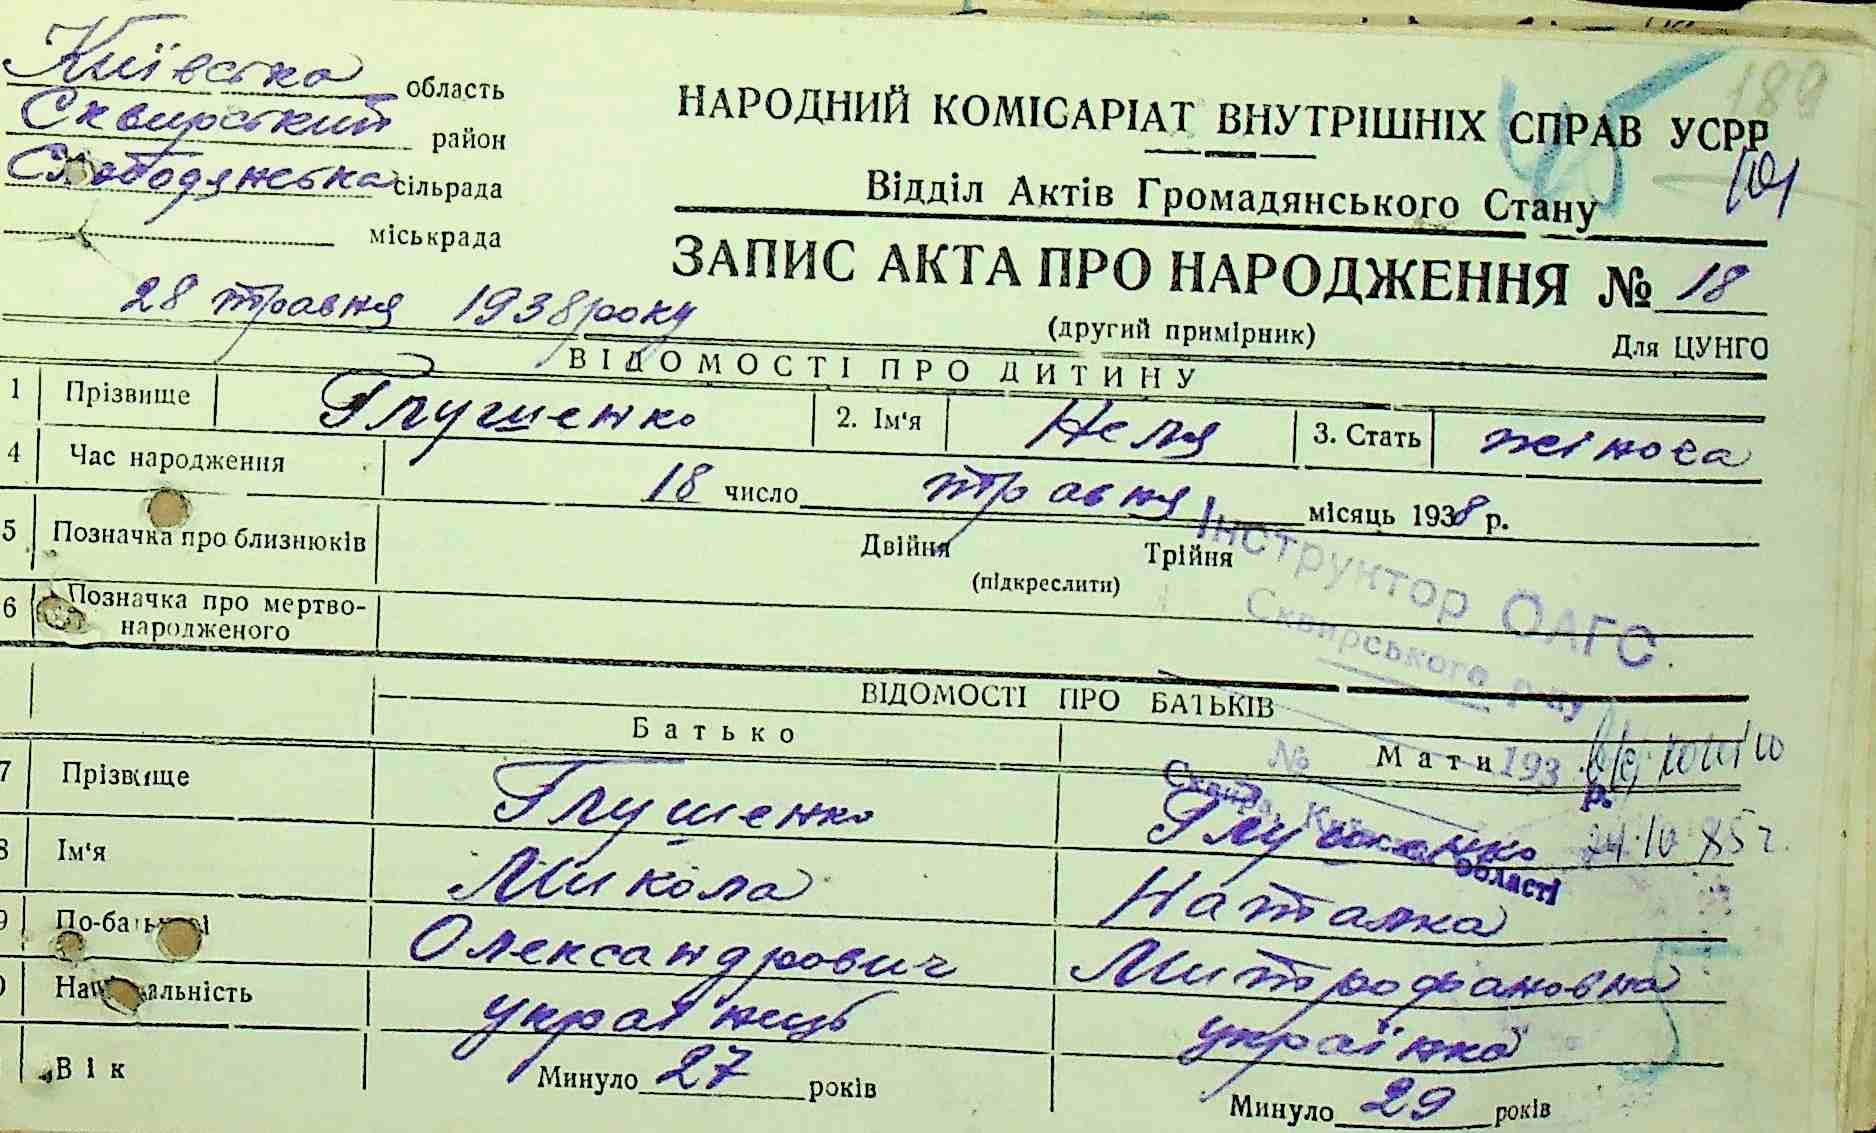 Київська область
Сквирський район
Слободянська сільрада
міськрада
189
НАРОДНИЙ КОМІСАРІАТ ВНУТРІШНІХ СПРАВ УСРР
Відділ Актів Громадянського Стану
ЗАПИС АКТА ПРО НАРОДЖЕННЯ № 18
28 травня 1938 року
(другий примірник) Для ЦУНГО
ВІДОМОСТІ ПРО ДИТИНУ
1 Прізвище Глушенко 2. Ім'я Неля 3. Стать жіноча
4 Час народження 18 число травня місяць 1938 р.
5 Позначка про близнюків Двійня Трійня
(підкреслити)
6 Позначка про мертво-
народженого
Інструктор ОАГС
Сквирського р-ну
№ 193 р.
Сквира, області
ВІДОМОСТІ ПРО БАТЬКІВ
Батько Мати
7 Прізвище Глушенко Глушенко
24.10 85 г.
8 Ім'я Микола Наталка
9 По-батькові Олександрович Митрофановна
Національність українець українка
Вік Минуло 27 років Минуло 29 років